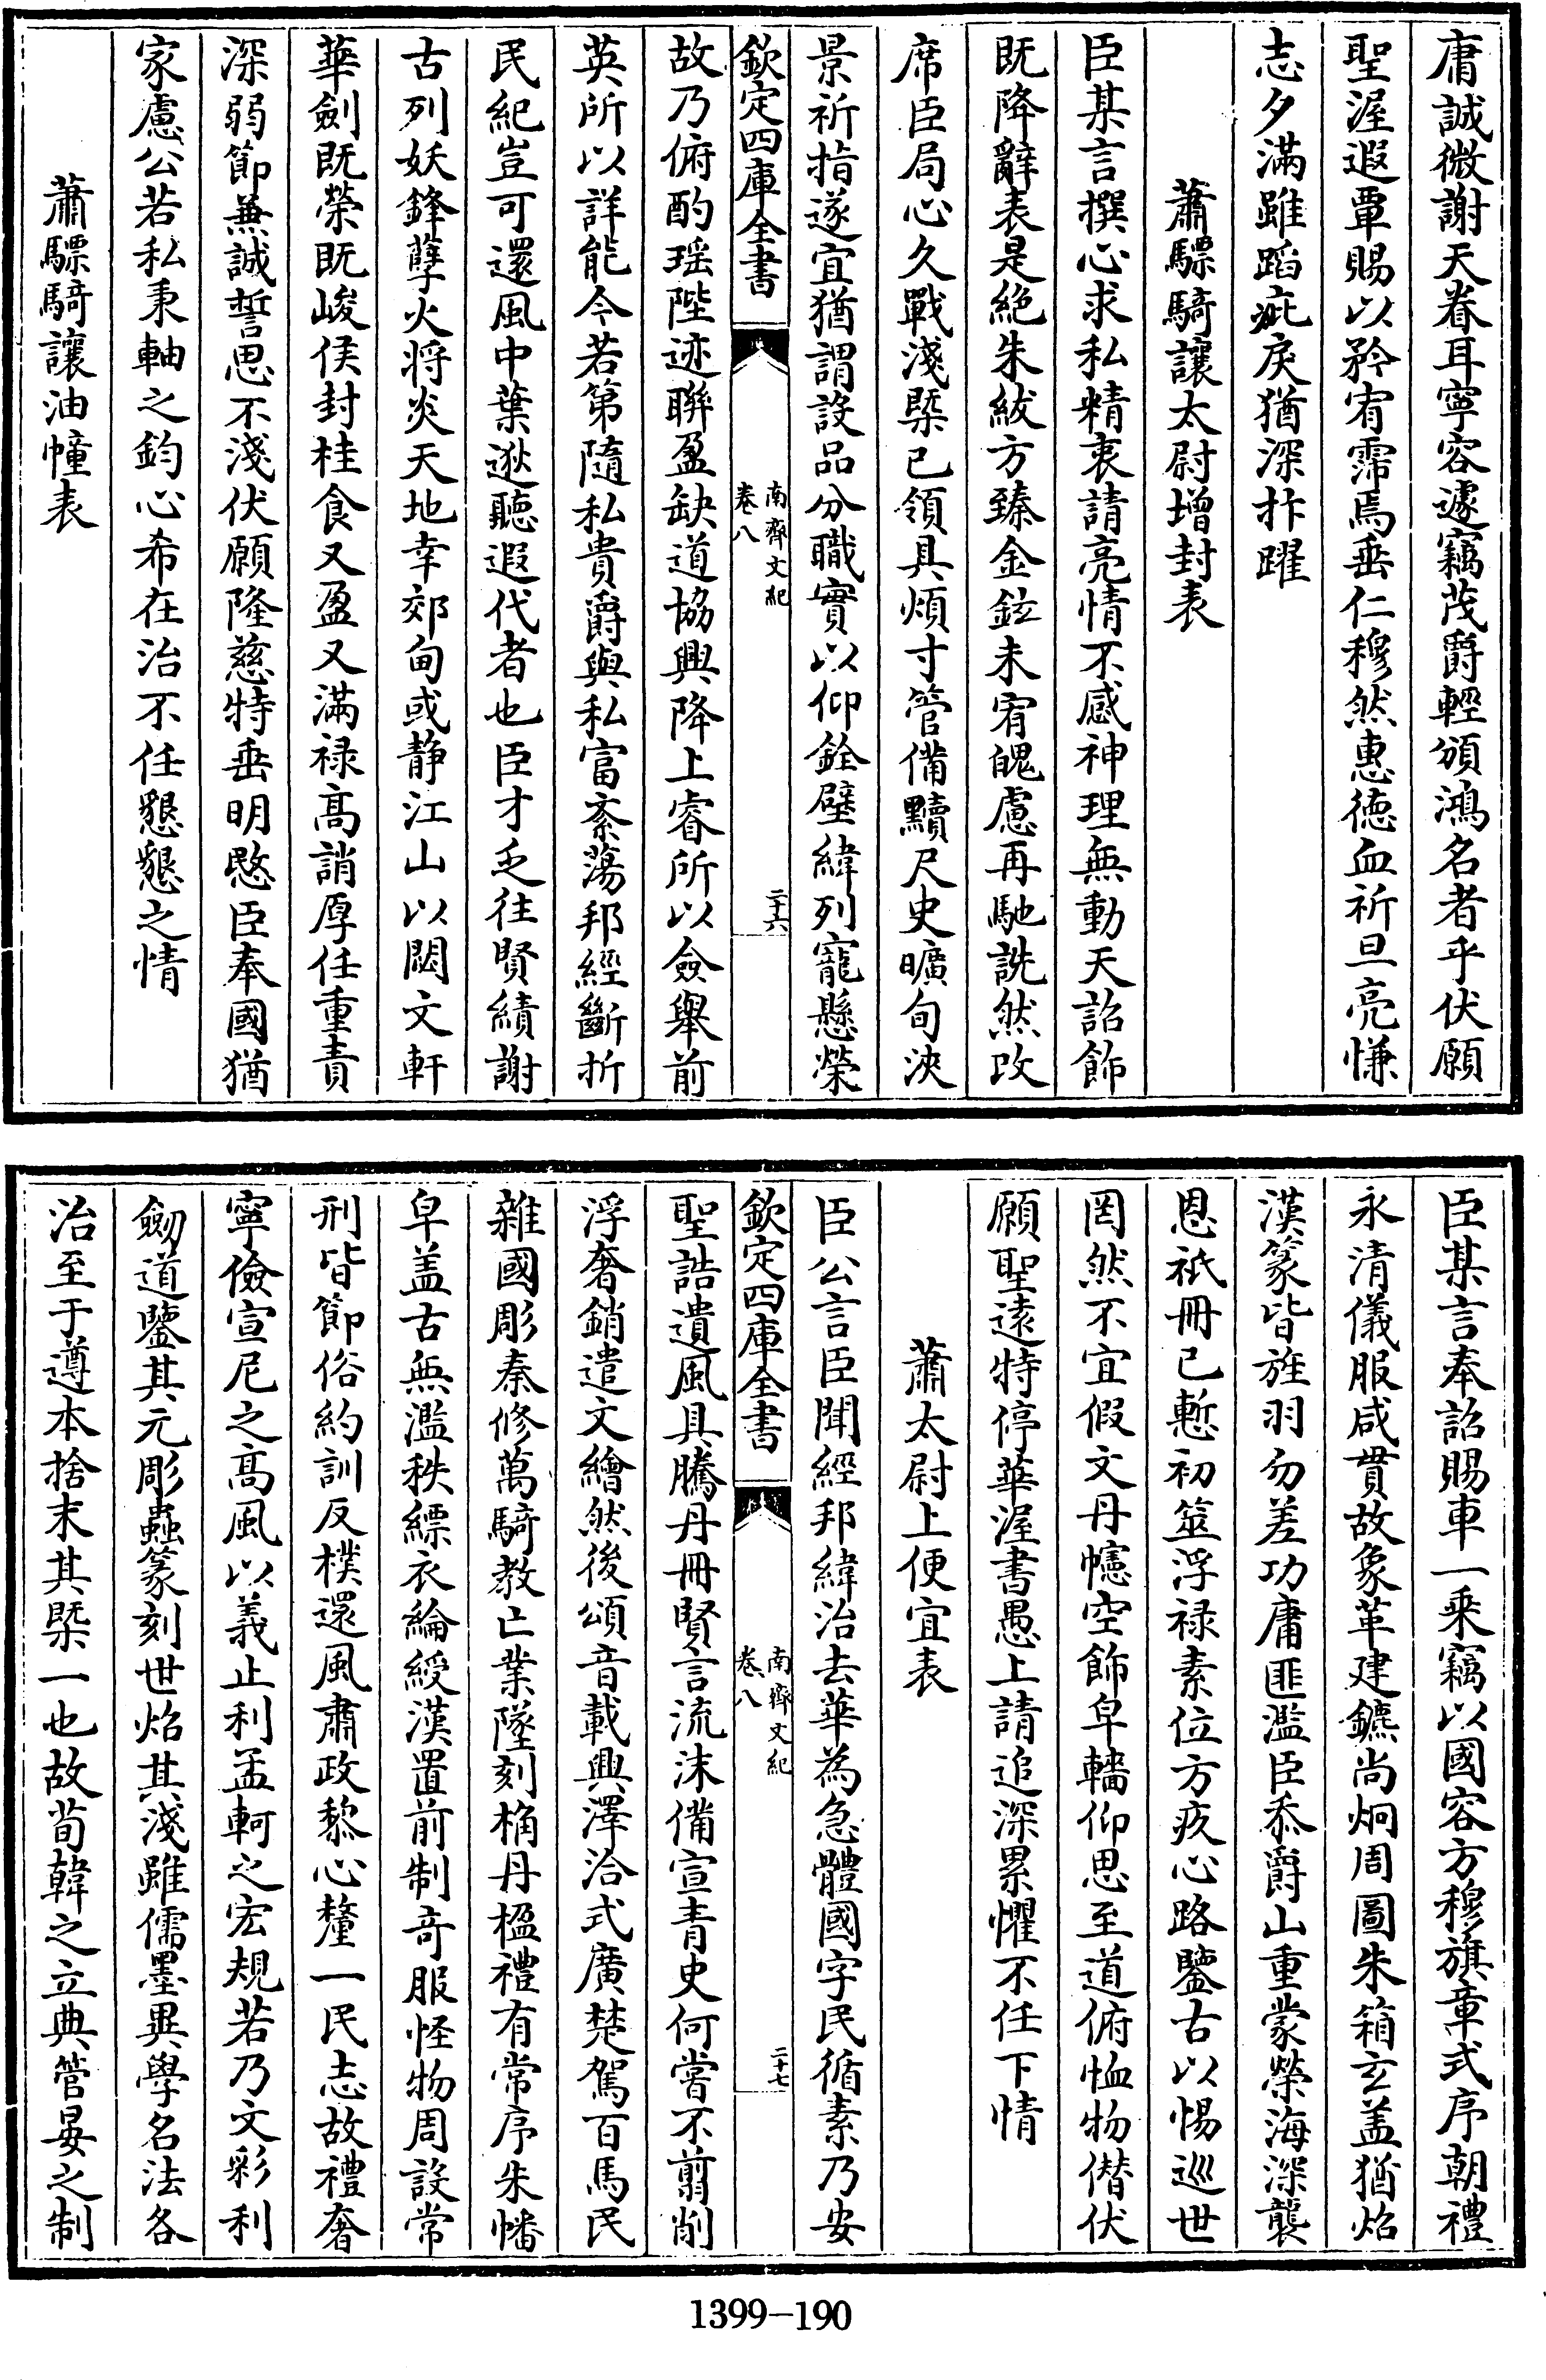 庸誠微謝天眷耳寧容遽竊茂爵輕頒鴻名者乎伏願
聖渥遐覃賜以矜宥霈焉垂仁穆然惠德血祈旦亮慊
志夕滿雖蹈疵戾猶深抃躍
蕭驃騎讓太尉增封表
臣某言撰心求私精衷請亮情不感神理無動天詔飾
既降辭表是絕朱紱方臻金鉉未宥䰟慮再馳詵然改
席臣局心久戰淺槩已領具煩寸管備黷尺史曠旬浹
景祈指遂宜猶謂設品分職實以仰銓壁緯列寵懸榮
欽定四庫全書
南齊文紀
卷八
二十六
故乃俯酌瑶陛迹聯盈缺道協興降上睿所以僉舉前
英所以詳能今若第隨私貴爵與私富紊蕩邦經斷折
民紀豈可還風中葉逖聽遐代者也臣才乏往賢績謝
古列妖鋒孽火将炎天地幸郊甸或静江山以閟文軒
華劍既榮既峻侯封桂食又盈又滿禄髙誚厚任重責
深弱節兼誠誓思不淺伏願隆慈特垂明愍臣奉國猶
家慮公若私秉軸之鈞心希在治不任懇懇之情
蕭驃騎讓油幢表
臣某言奉詔賜車一乘竊以國容方穆旗章式序朝禮
永清儀服咸貫故象革建鑣尚炯周圖朱箱玄盖猶炤
漢篆皆旌羽勿差功庸匪濫臣忝爵山重蒙榮海深襲
恩祇冊已慙初筮浮禄素位方疚心路鑒古以惕巡世
罔然不宜假文丹幰空飾皁轓仰思至道俯恤物偕伏
願聖逺特停華渥書愚上請追深累懼不任下情
蕭太尉上便宜表
臣公言臣聞經邦緯治去華為急體國字民循素乃安
欽定四庫全書
南齊文紀
卷八
二十七
聖誥遺風具騰丹冊賢言流沫備宣青史何嘗不翦削
浮奢銷遣文繪然後頌音載興澤洽式廣楚駕百馬民
雜國彫秦修萬騎教亡業墜刻桷丹楹禮有常序朱幡
皁盖古無濫秩縹衣綸綬漢置前制竒服怪物周設常
刑皆節俗約訓反樸還風肅政黎心釐一民志故禮奢
寧儉宣尼之髙風以義止利孟軻之宏規若乃文彩利
劒道鑒其元彫蟲篆刻世炤其淺雖儒墨異學名法各
治至于遵本捨末其槩一也故荀韓之立典管晏之制
1399-190